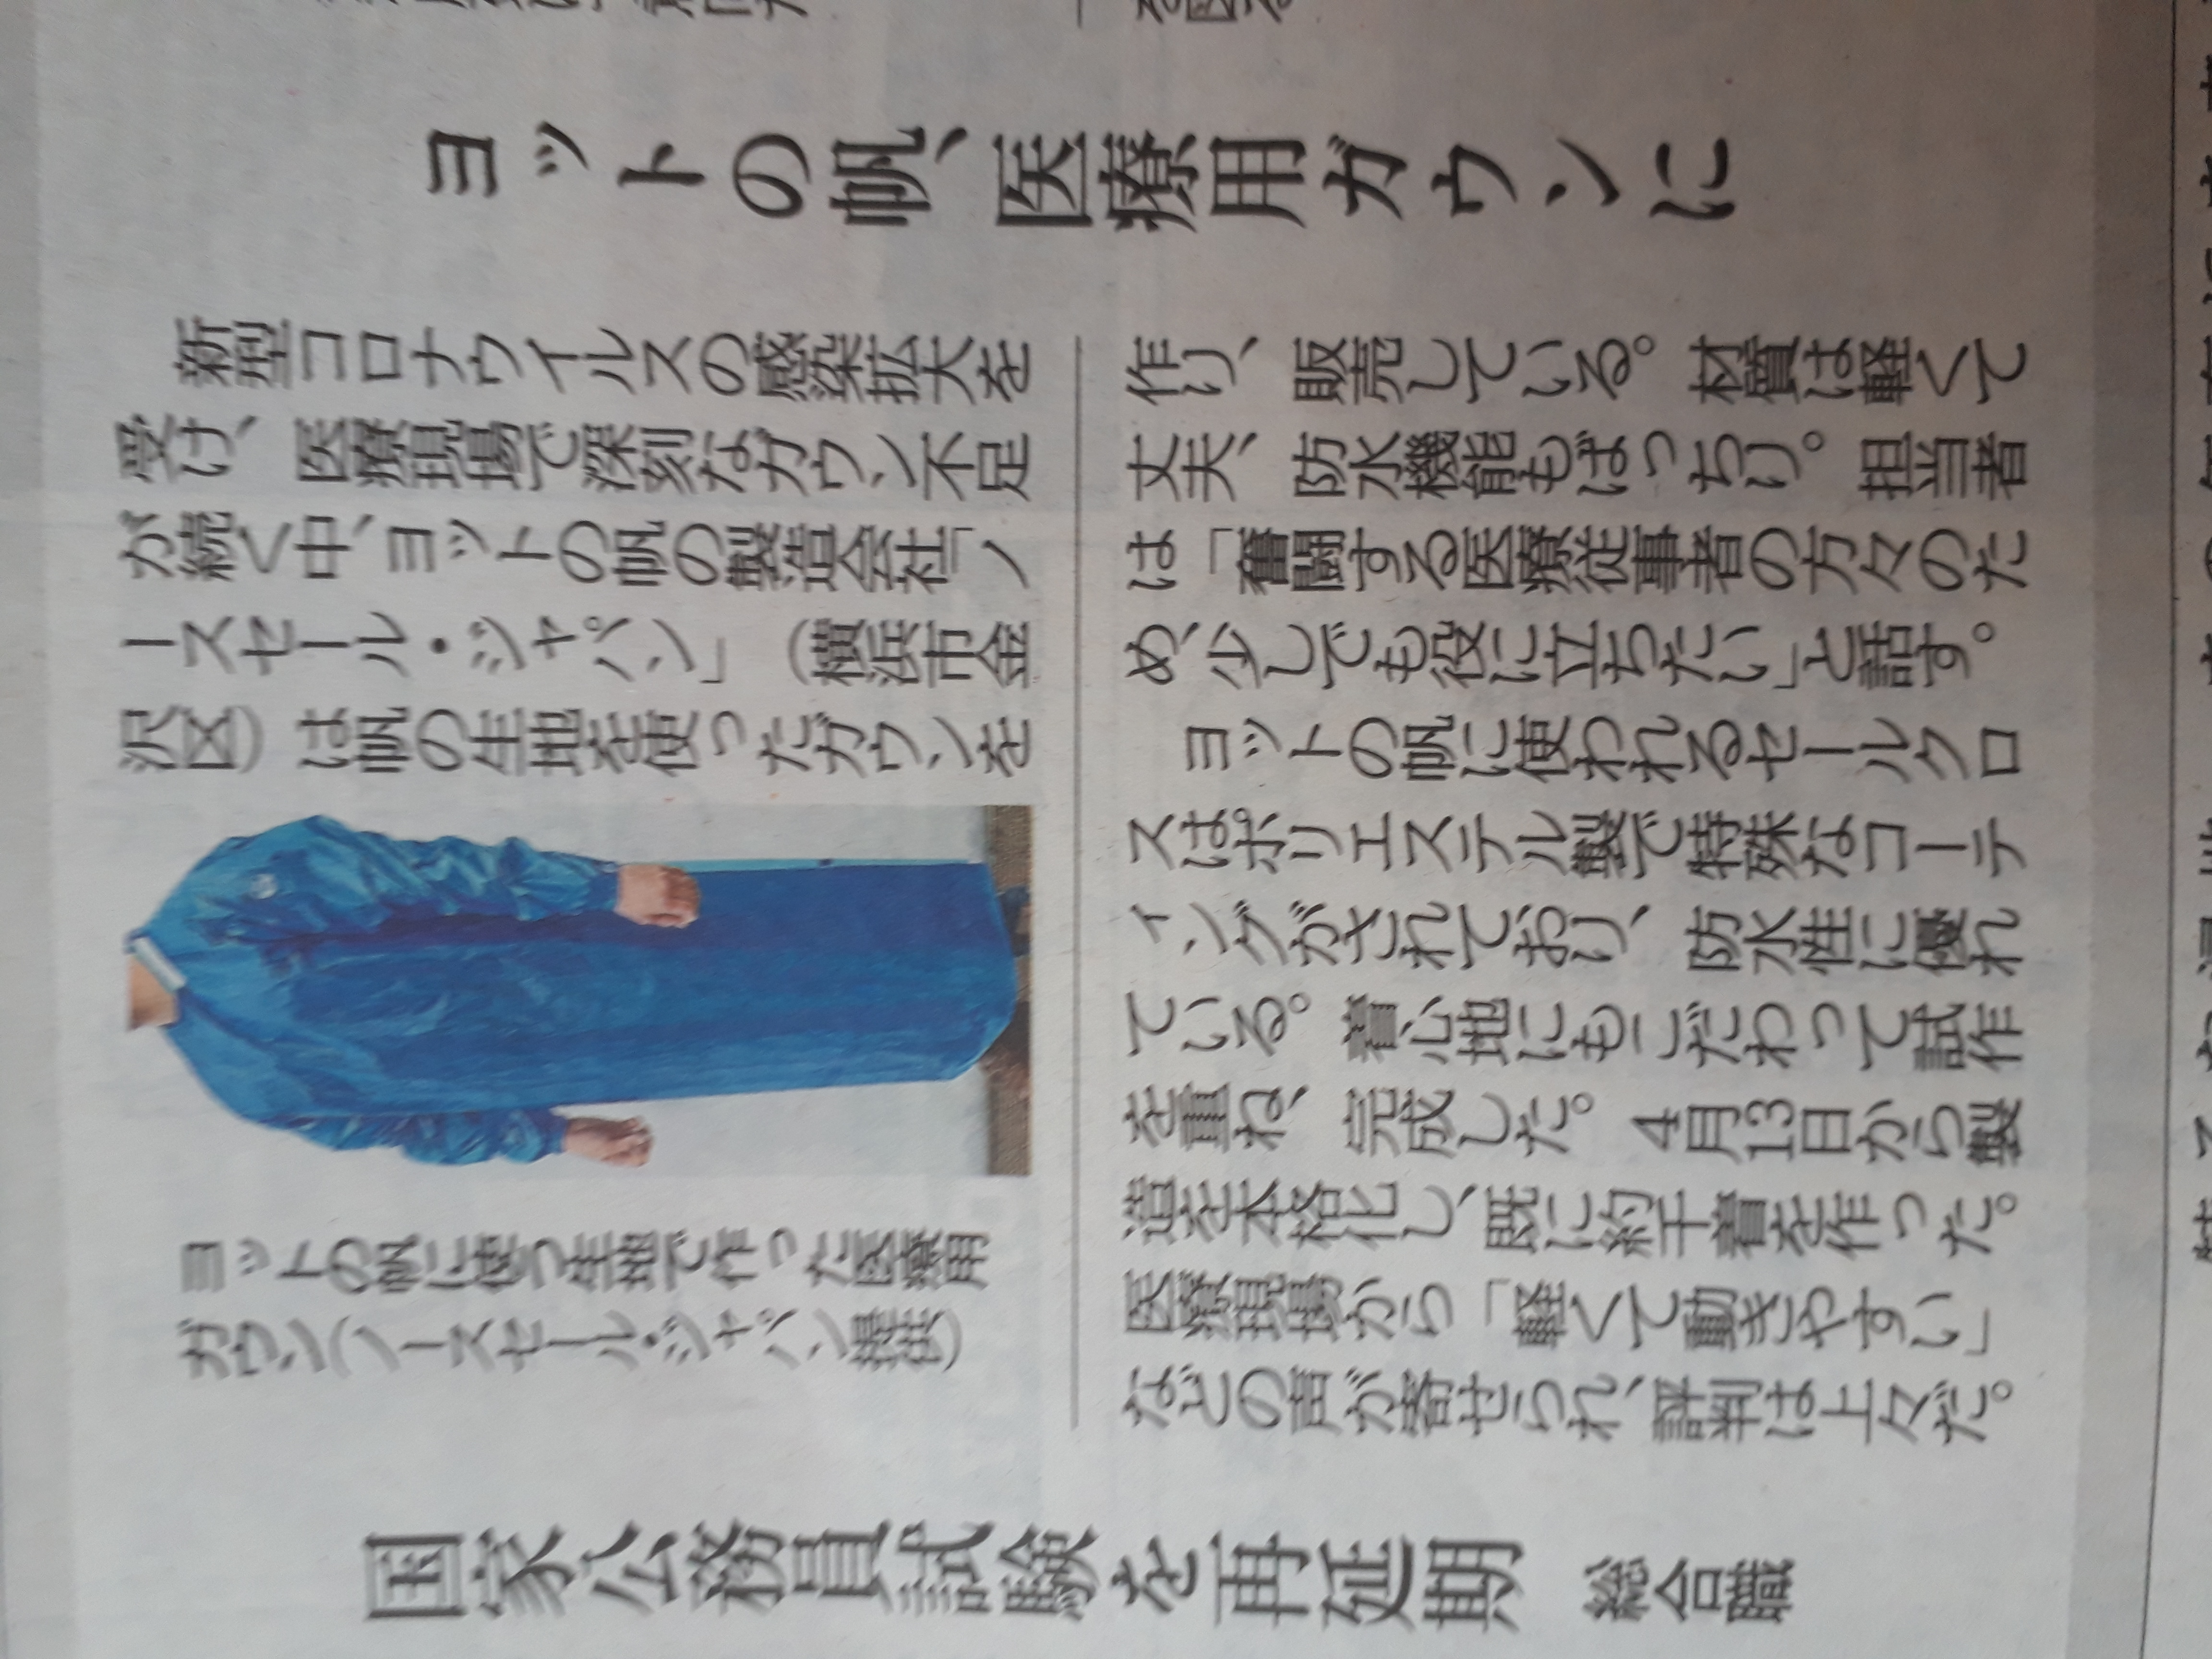 ヨットの帆、医療用ガウンに
新型コロナウイルスの感染拡大を
受け、医療現場で深刻なガウン不足
が続く中、ヨットの帆の製造会社「ノ
ースセール・ジャパン」（横浜市金
沢区）は帆の生地を使ったガウンを
作り、販売している。材質は軽くて
丈夫、防水機能もばっちり。担当者
は「奮闘する医療従事者の方々のた
め、少しでも役に立ちたい」と話す。
ヨットの帆に使われるセールクロ
スはポリエステル製で特殊なコーテ
ィングがされており、防水性に優れ
ている。着心地にもこだわって試作
を重ね、完成した。4月13日から製
造を本格化し、既に約千着を作った。
医療現場から「軽くて動きやすい」
などの声が寄せられ、評判は上々だ。
ヨットの帆に使う生地で作った医療用
ガウン（ノースセール・ジャパン提供）
国家公務員試験を再延期 総合職